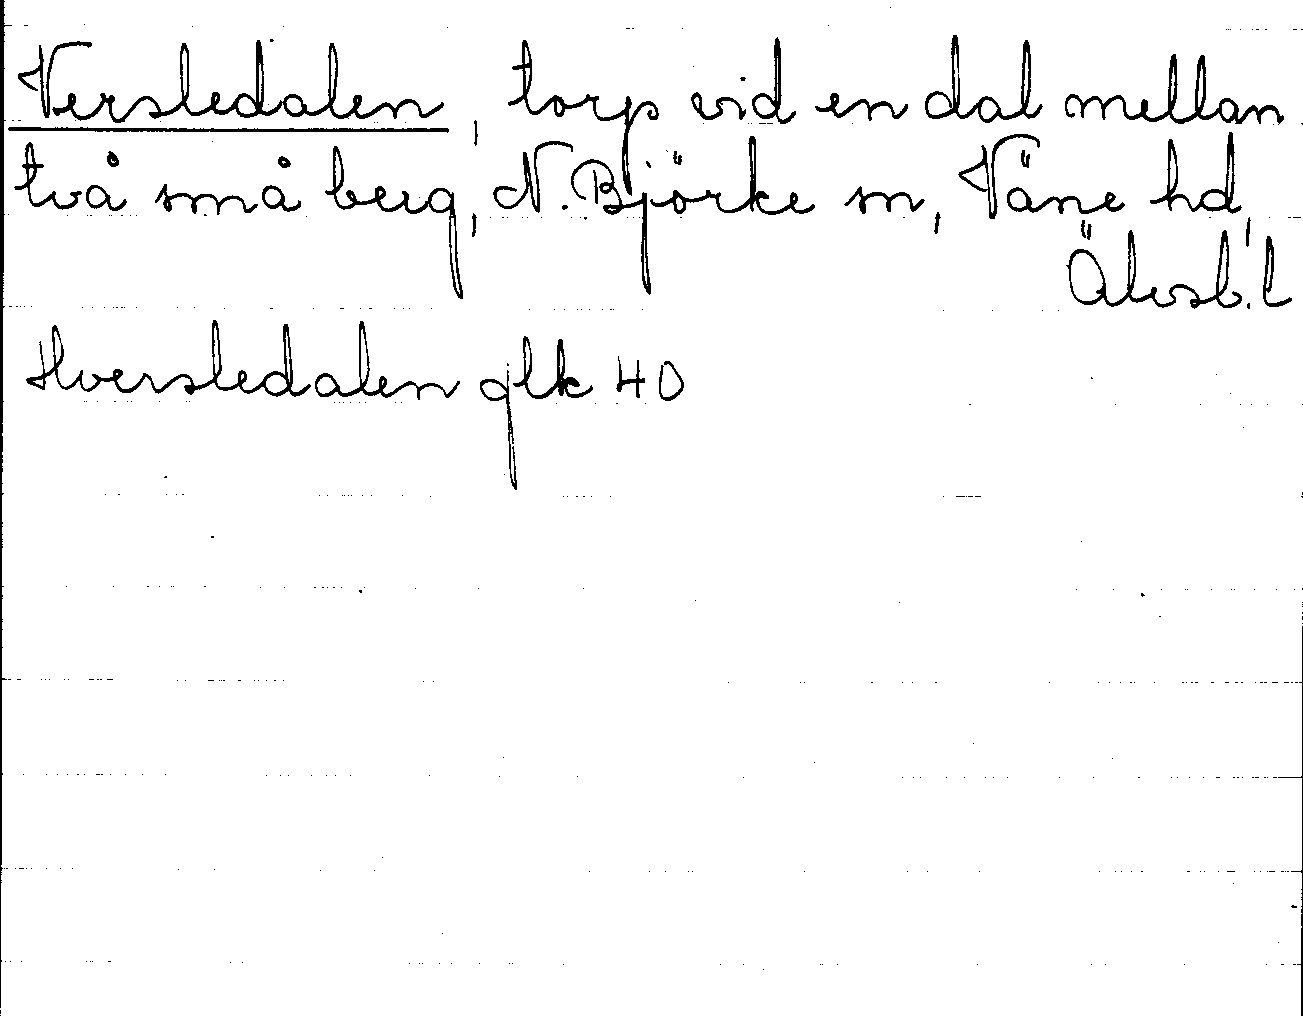 Versledalen, torp vid en dal mellan
två små berg, N. Björke sn, Väne hd,
Älvsb. l
Hversledalen glk 40